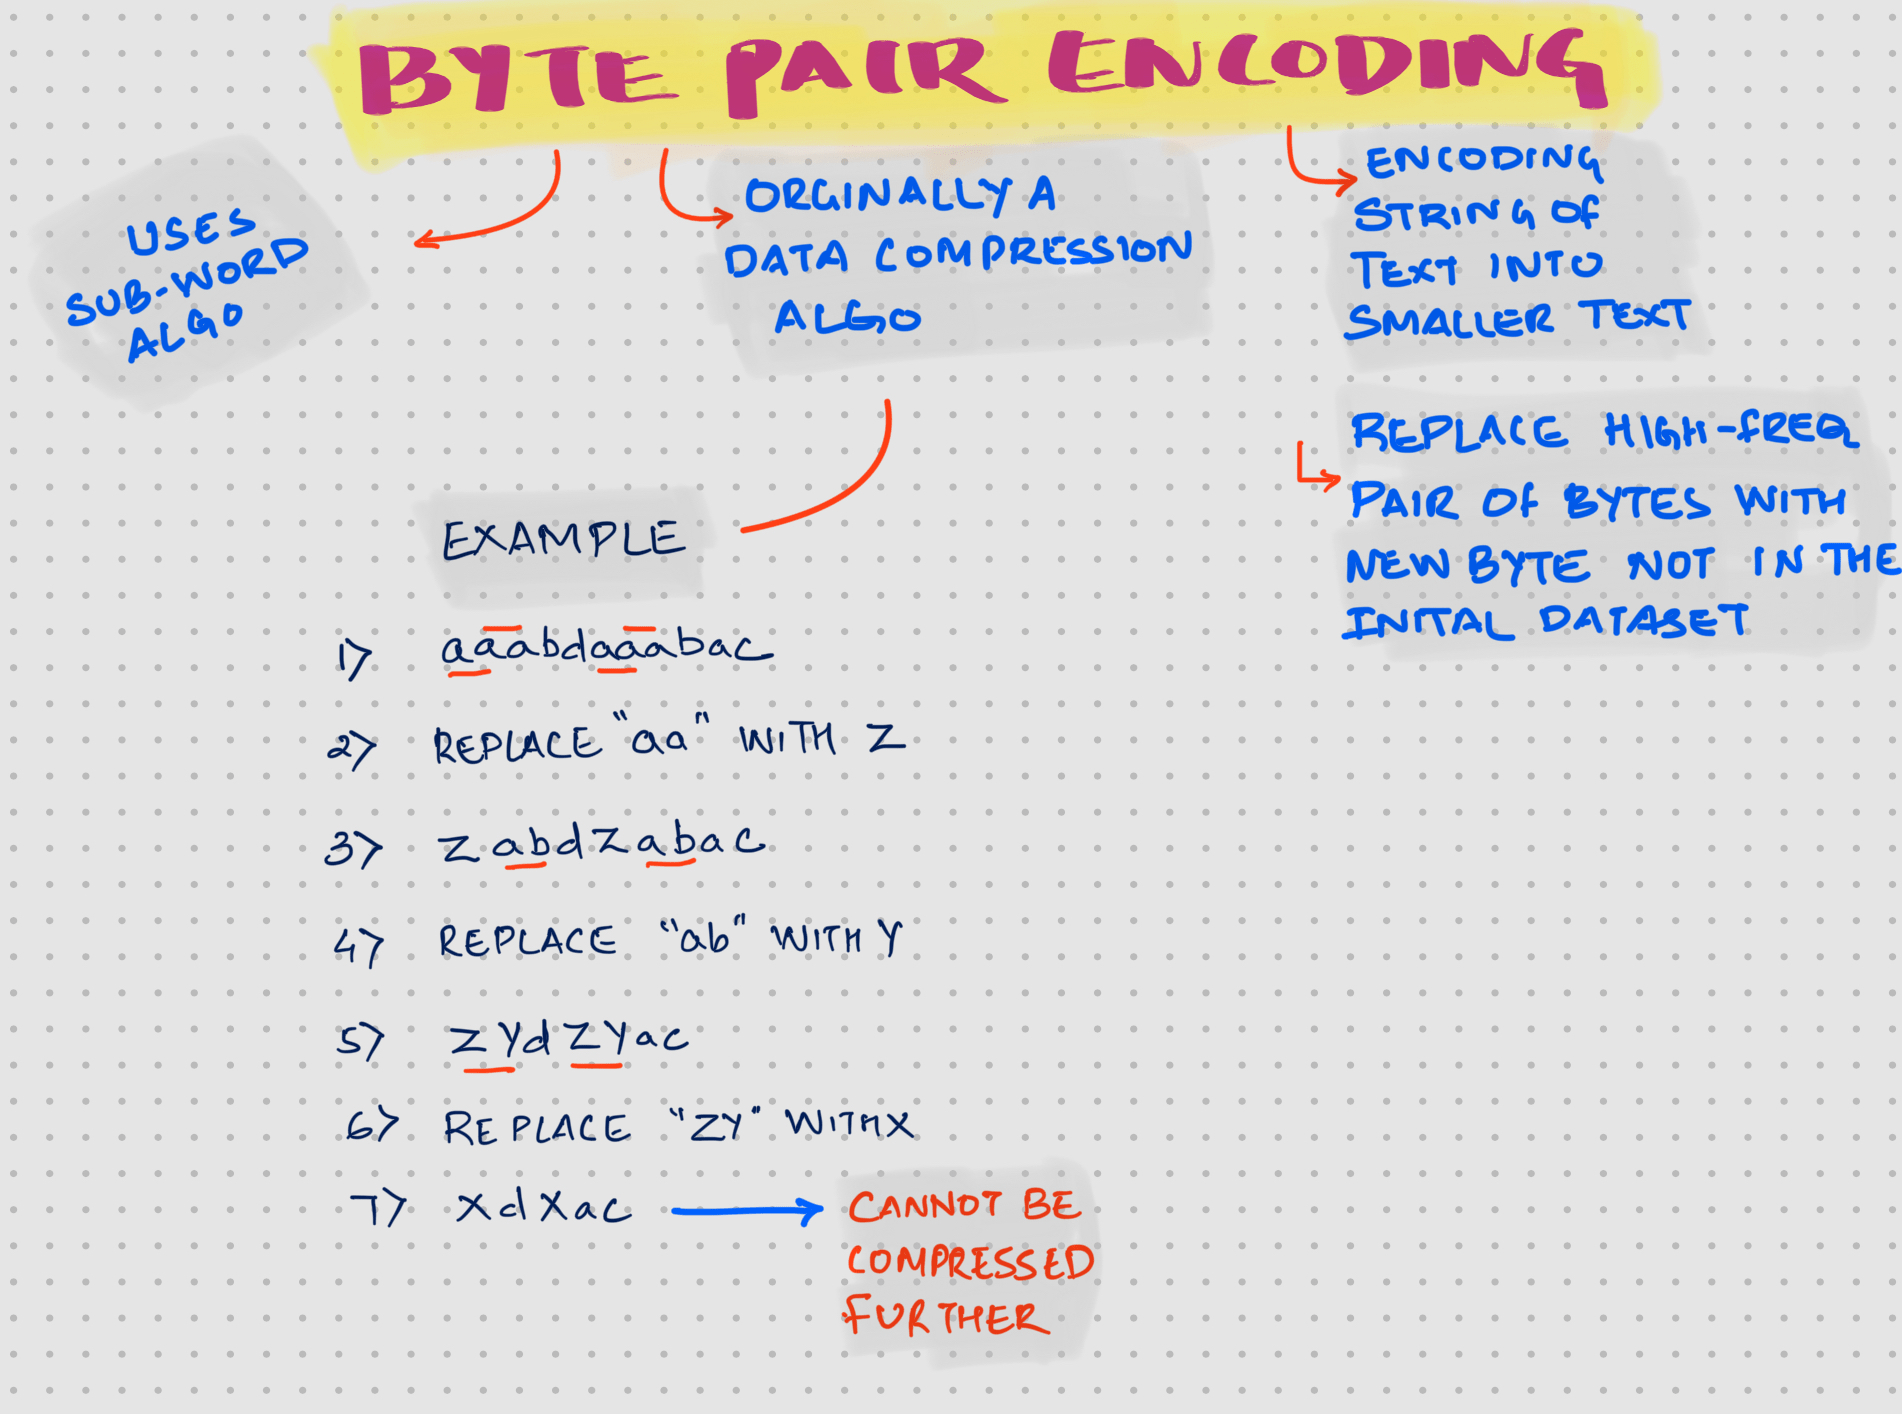 BYTE PAIR ENCODING
USES
SUB-WORD
ALGO
ORGINALLY A
DATA COMPRESSION
ALGO
ENCODING
STRING OF
TEXT INTO
SMALLER TEXT
REPLACE HIGH-FREQ
PAIR OF BYTES WITH
NEW BYTE NOT IN THE
INITAL DATASET
EXAMPLE
1> aaabdaaabac
2> REPLACE "aa" WITH Z
3> ZabdZabac
4> REPLACE "ab" WITH Y
5> ZYdZYac
6> REPLACE "ZY" WITH X
7> XdXac
CANNOT BE
COMPRESSED
FURTHER